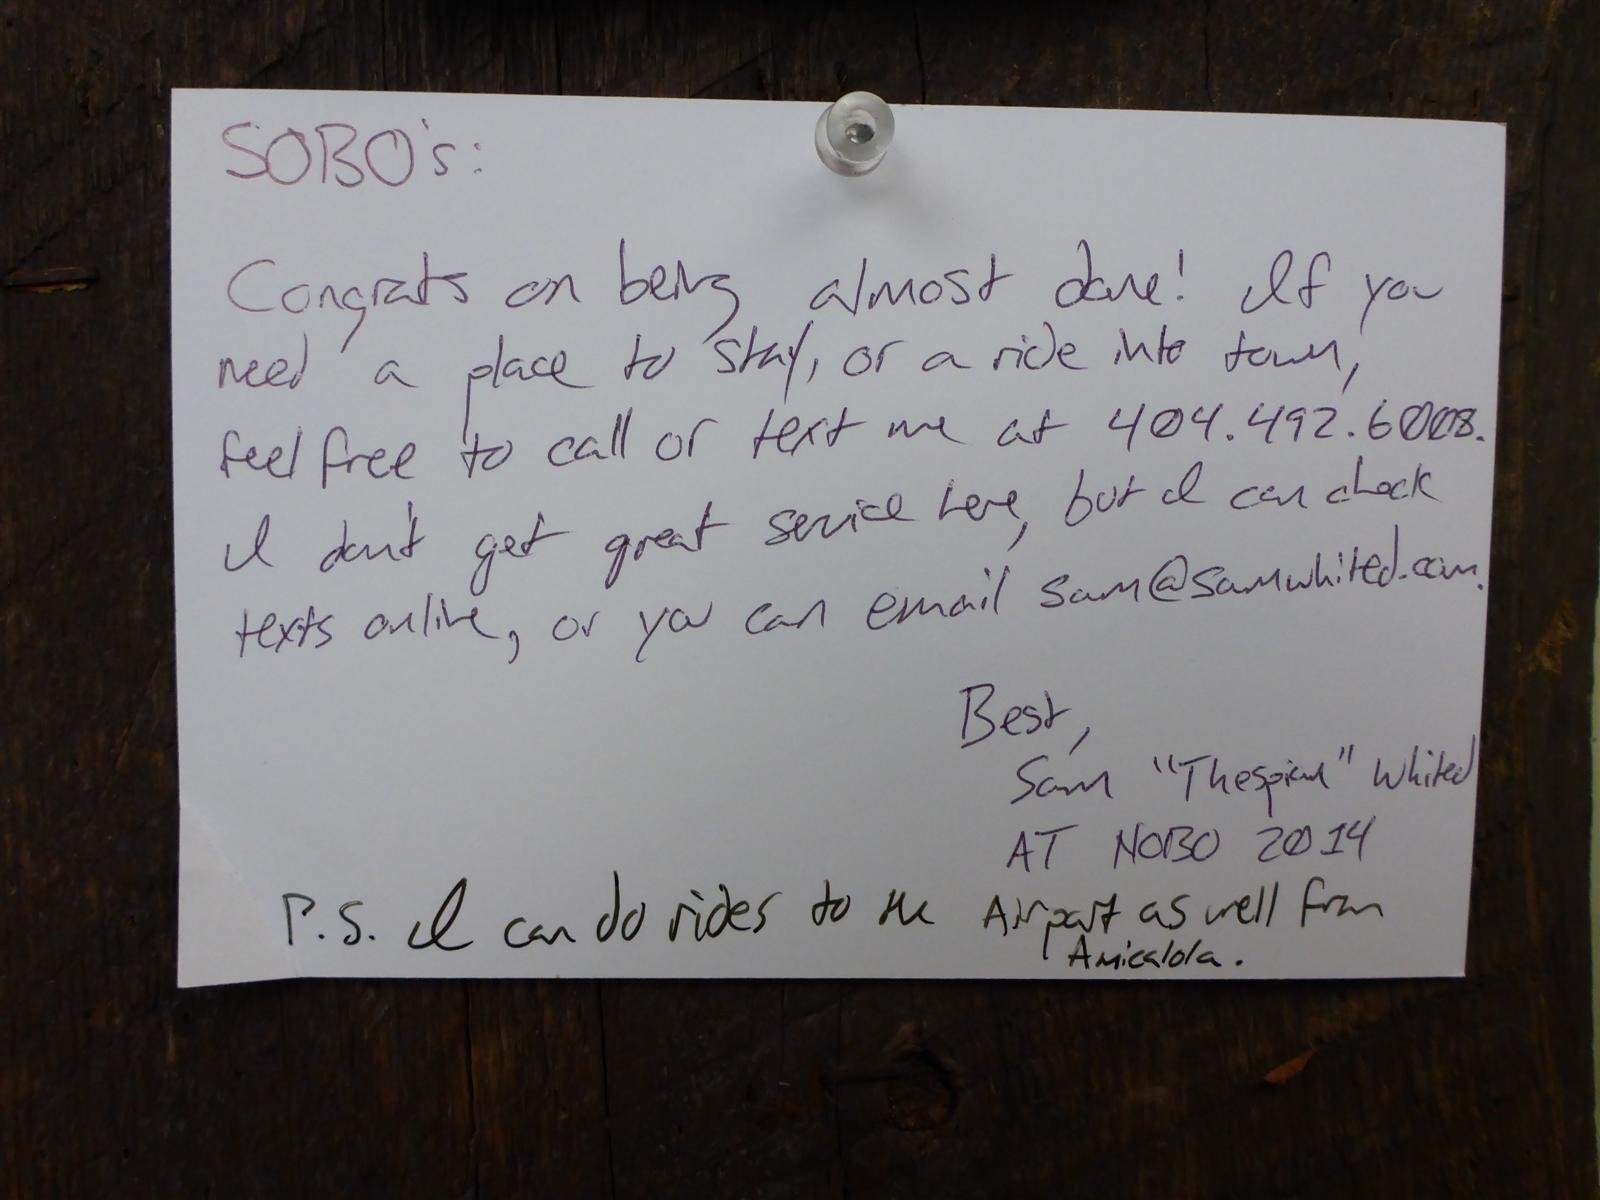 SOBO's:
Congrats on being almost done! If you
need a place to stay, or a ride into town,
feel free to call or text me at 404.492.6008.
I don't get great service here, but I can check
texts online, or you can email sam@samwhited.com.
Best,
Sam "Thespian" Whited
AT NOBO 2014
P.S. I can do rides to the Airport as well from
Amicalola.